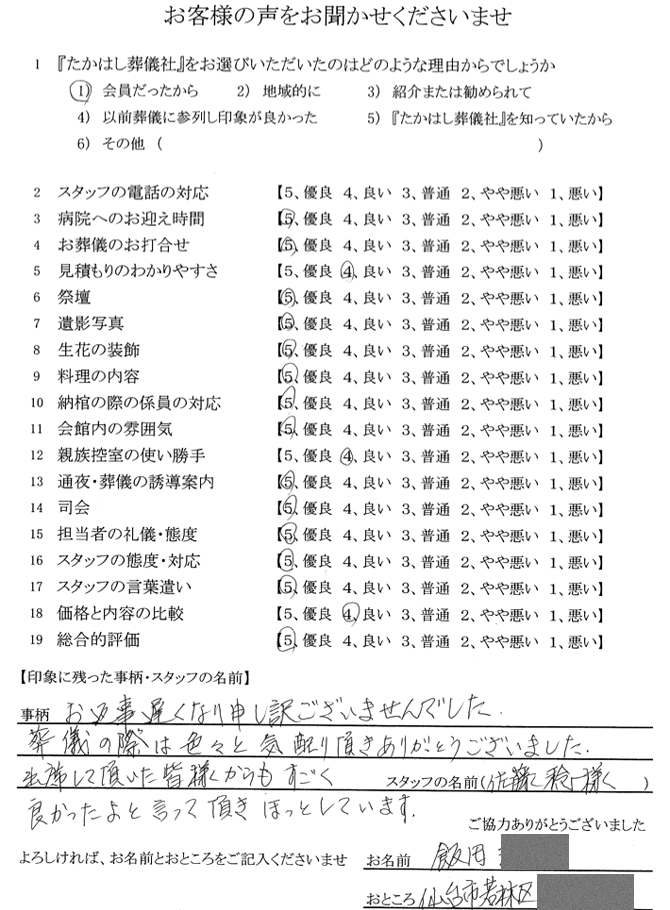 お客様の声をお聞かせくださいませ
1 『たかはし葬儀社』をお選びいただいたのはどのような理由からでしょうか
1) 会員だったから 2) 地域的に 3) 紹介または勧められて
4) 以前葬儀に参列し印象が良かった 5) 『たかはし葬儀社』を知っていたから
6) その他 ( )
2 スタッフの電話の対応 【5、優良 4、良い 3、普通 2、やや悪い 1、悪い】
3 病院へのお迎え時間 【5、優良 4、良い 3、普通 2、やや悪い 1、悪い】
4 お葬儀のお打合せ 【5、優良 4、良い 3、普通 2、やや悪い 1、悪い】
5 見積もりのわかりやすさ 【5、優良 4、良い 3、普通 2、やや悪い 1、悪い】
6 祭壇 【5、優良 4、良い 3、普通 2、やや悪い 1、悪い】
7 遺影写真 【5、優良 4、良い 3、普通 2、やや悪い 1、悪い】
8 生花の装飾 【5、優良 4、良い 3、普通 2、やや悪い 1、悪い】
9 料理の内容 【5、優良 4、良い 3、普通 2、やや悪い 1、悪い】
10 納棺の際の係員の対応 【5、優良 4、良い 3、普通 2、やや悪い 1、悪い】
11 会館内の雰囲気 【5、優良 4、良い 3、普通 2、やや悪い 1、悪い】
12 親族控室の使い勝手 【5、優良 4、良い 3、普通 2、やや悪い 1、悪い】
13 通夜・葬儀の誘導案内 【5、優良 4、良い 3、普通 2、やや悪い 1、悪い】
14 司会 【5、優良 4、良い 3、普通 2、やや悪い 1、悪い】
15 担当者の礼儀・態度 【5、優良 4、良い 3、普通 2、やや悪い 1、悪い】
16 スタッフの態度・対応 【5、優良 4、良い 3、普通 2、やや悪い 1、悪い】
17 スタッフの言葉遣い 【5、優良 4、良い 3、普通 2、やや悪い 1、悪い】
18 価格と内容の比較 【5、優良 4、良い 3、普通 2、やや悪い 1、悪い】
19 総合的評価 【5、優良 4、良い 3、普通 2、やや悪い 1、悪い】
【印象に残った事柄・スタッフの名前】
事柄 お返事遅くなり申し訳ございませんでした.
葬儀の際は色々と気配り頂きありがとうございました.
出席して頂いた皆様からもすごく スタッフの名前(佐藤 様 )
良かったよと言って頂きほっとしています.
ご協力ありがとうございました
よろしければ、お名前とおところをご記入くださいませ お名前 飯田
おところ 仙台市若林区